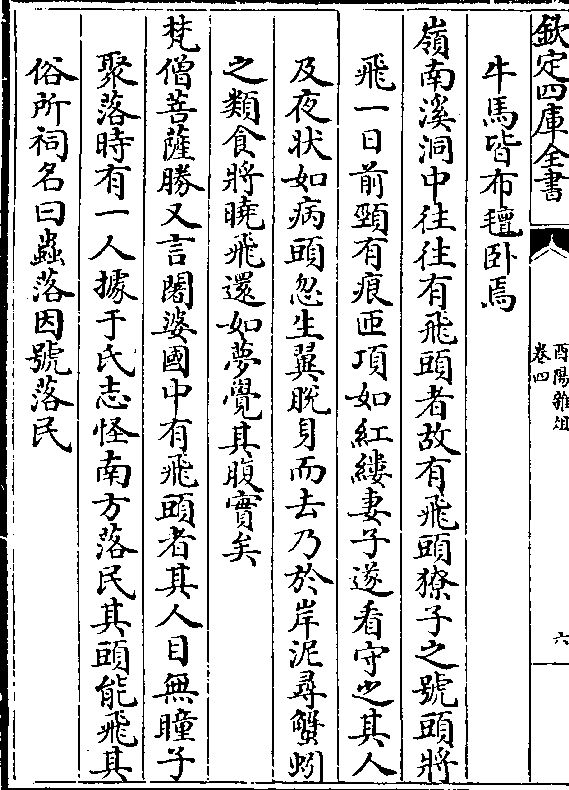 欽定四庫全書
酉陽雜俎
卷四
六
牛馬皆布氊卧焉
嶺南溪洞中往往有飛頭者故有飛頭獠子之號頭將
飛一日前頸有痕匝項如紅縷妻子遂看守之其人
及夜狀如病頭忽生翼脫身而去乃於岸泥尋蟹蚓
之類食將曉飛還如夢覺其腹實矣
梵僧菩薩勝又言闍婆國中有飛頭者其人目無瞳子
聚落時有一人據于氏志怪南方落民其頭能飛其
俗所祠名曰蟲落因號落民